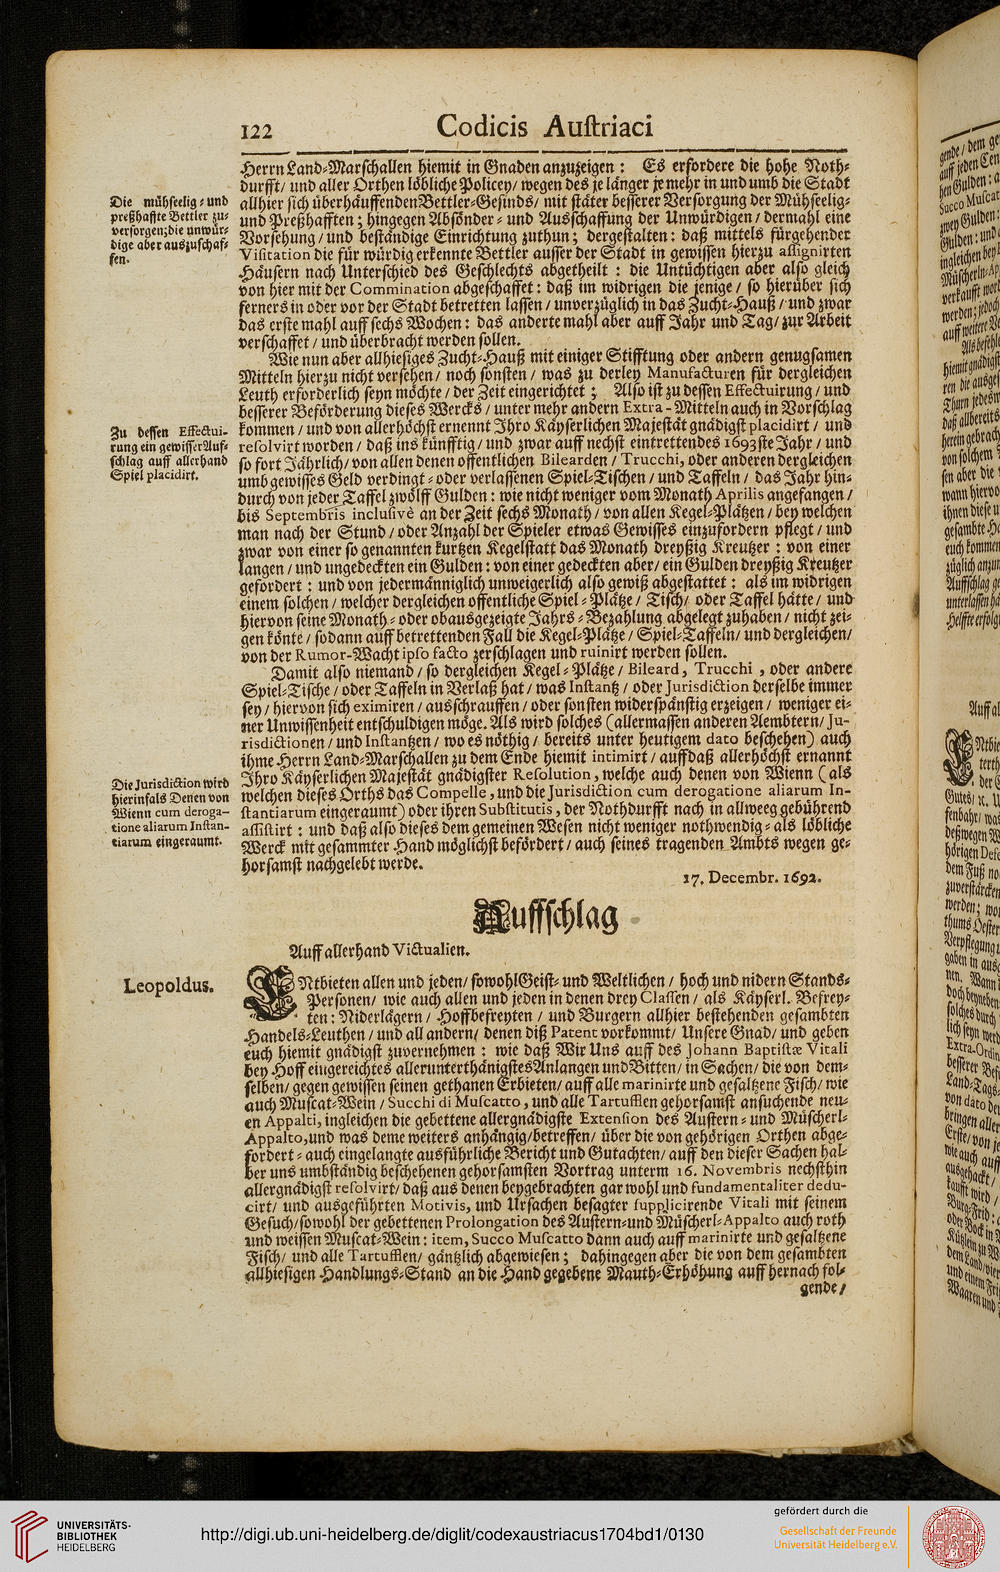 122 Codicis Auſtriaci
Herrn Land-Marſchallen hiemit in Gnaden anzuzeigen : Es erfordere die hohe Noth-
durfft/ und aller Orthen löbliche Policey/ wegen des je länger je mehr in und umb die Stadt
allhier ſich überhäuffenden Bettler-Geſinds/ mit ſtäter beſſerer Verſorgung der Mühſeelig-
und Preßhafften ; hingegen Abſönder- und Ausſchaffung der Unwürdigen / dermahl eine
Vorſehung / und beſtändige Einrichtung zuthun ; dergeſtalten : daß mittels fürgehender
Viſitation die für würdig erkennte Bettler auſſer der Stadt in gewiſſen hierzu aſſignirten
Häuſern nach Unterſchied des Geſchlechts abgetheilt : die Untüchtigen aber alſo gleich
von hier mit der Commination abgeſchaffet : daß im widrigen die jenige / ſo hierüber ſich
ferners in oder vor der Stadt betretten laſſen / unverzüglich in das Zucht-Hauß / und zwar
das erſte mahl auff ſechs Wochen : das anderte mahl aber auff Jahr und Tag / zur Arbeit
verſchaffet / und überbracht werden ſollen.
Die mühſeelig- und
preßhaffte Bettler zu-
verſorgen; die unwür-
dige aber auszuſchaf-
fen.
Wie nun aber allhieſiges Zucht-Hauß mit einiger Stifftung oder andern genugſamen
Mitteln hierzu nicht verſehen / noch ſonſten / was zu derley Manufacturen für dergleichen
Leuth erforderlich ſeyn möchte / der Zeit eingerichtet ; Alſo iſt zu deſſen Effectuirung / und
beſſerer Beförderung dieſes Wercks / unter mehr andern Extra-Mitteln auch in Vorſchlag
kommen / und von allerhöchſt ernennt Ihro Käyſerlichen Majeſtät gnädigſt placidirt / und
reſolvirt worden / daß ins künfftig / und zwar auff nechſt eintrettendes 1693ſte Jahr / und
ſo fort Jährlich / von allen denen offentlichen Bilearden / Trucchi, oder anderen dergleichen
umb gewiſſes Geld verdingt- oder verlaſſenen Spiel-Tiſchen / und Taffeln / das Jahr hin-
durch von jeder Taffel zwölff Gulden : wie nicht weniger vom Monath Aprilis angefangen /
bis Septembris incluſivè an der Zeit ſechs Monath / von allen Kegel-Plätzen / bey welchen
man nach der Stund / oder Anzahl der Spieler etwas Gewiſſes einzufordern pflegt / und
zwar von einer ſo genannten kurtzen Kegelſtatt das Monath dreyßig Kreutzer : von einer
langen / und ungedeckten ein Gulden : von einer gedeckten aber / ein Gulden dreyßig Kreutzer
gefordert : und von jedermänniglich unweigerlich alſo gewiß abgeſtattet : als im widrigen
einem ſolchen / welcher dergleichen offentliche Spiel-Plätze / Tiſch / oder Taffel hätte / und
hiervon ſeine Monath- oder obausgezeigte Jahrs-Bezahlung abgelegt zuhaben / nicht zei-
gen könte / ſodann auff betrettenden Fall die Kegel-Plätze / Spiel-Taffeln / und dergleichen /
von der Rumor-Wacht ipſo facto zerſchlagen und ruinirt werden ſollen.
Zu deſſen Effectui-
rung ein gewiſſer Auf-
ſchlag auff allerhand
Spiel placidirt.
Damit alſo niemand / ſo dergleichen Kegel-Plätze / Bileard, Trucchi , oder andere
Spiel-Tiſche / oder Taffeln in Verlaß hat / was Inſtantz / oder Jurisdiction derſelbe immer
ſey / hiervon ſich eximiren / ausſchrauffen / oder ſonſten widerſpänſtig erzeigen / weniger ei-
ner Unwiſſenheit entſchuldigen möge. Als wird ſolches (allermaſſen anderen Aembtern / Ju-
risdictionen / und Inſtantzen / wo es nöthig / bereits unter heutigem dato beſchehen) auch
ihme Herrn Land-Marſchallen zu dem Ende hiemit intimirt / auffdaß allerhöchſt ernannt
Ihro Käyſerlichen Majeſtät gnädigſter Reſolution, welche auch denen von Wienn (als
welchen dieſes Orths das Compelle, und die Jurisdiction cum derogatione aliarum In-
ſtantiarum eingeraumt) oder ihren Subſtitutis, der Nothdurfft nach in allweeg gebührend
aſſiſtirt : und daß alſo dieſes dem gemeinen Weſen nicht weniger nothwendig- als löbliche
Werck mit geſammter Hand möglichſt befördert / auch ſeines tragenden Ambts wegen ge-
horſamſt nachgelebt werde.
Die Jurisdiction wird
hierinfals Denen von
Wienn cum deroga-
tione aliarum Inſtan-
tiarum eingeraumt.
17. Decembr. 1692.
Auffſchlag
Auff allerhand Victualien.
Leopoldus.
ENtbieten allen und jeden / ſowohl Geiſt- und Weltlichen / hoch und nidern Stands-
Perſonen / wie auch allen und jeden in denen drey Claſſen / als Käyſerl. Befrey-
ten : Niderlägern / Hoffbefreyten / und Burgern allhier beſtehenden geſambten
Handels-Leuthen / und all andern / denen diß Patent vorkommt / Unſere Gnad / und geben
euch hiemit gnädigſt zuvernehmen : wie daß Wir Uns auff des Johann Baptiſtæ Vitali
bey Hoff eingereichtes allerunterthänigſtes Anlangen und Bitten / in Sachen / die von dem-
ſelben / gegen gewiſſen ſeinen gethanen Erbieten / auff alle marinirte und geſaltzene Fiſch / wie
auch Muſcat-Wein / Succhi di Muſcatto , und alle Tartufflen gehorſamſt anſuchende neu-
en Appalti, ingleichen die gebettene allergnädigſte Extenſion des Auſtern- und Müſcherl-
Appalto, und was deme weiters anhängig / betreffen / über die von gehörigen Orthen abge-
fordert- auch eingelangte ausführliche Bericht und Gutachten / auff den dieſer Sachen hal-
ber uns umbſtändig beſchehenen gehorſamſten Vortrag unterm 16. Novembris nechſthin
allergnädigſt reſolvirt / daß aus denen beygebrachten gar wohl und fundamentaliter dedu-
cirt / und ausgeführten Motivis, und Urſachen beſagter ſupplicirende Vitali mit ſeinem
Geſuch / ſowohl der gebettenen Prolongation des Auſtern- und Müſcherl-Appalto auch roth
und weiſſen Muſcat-Wein : item, Succo Muſcatto dann auch auff marinirte und geſaltzene
Fiſch / und alle Tartufflen / gäntzlich abgewieſen ; dahingegen aber die von dem geſambten
allhieſigen Handlungs-Stand an die Hand gegebene Mauth-Erhöhung auff hernach fol-
gende /
UNIVERSITÄTS-
BIBLIOTHEK
HEIDELBERG
http://digi.ub.uni-heidelberg.de/diglit/codexaustriacus1704bd1/0130
gefördert durch die
Gesellschaft der Freunde
Universität Heidelberg e.V.